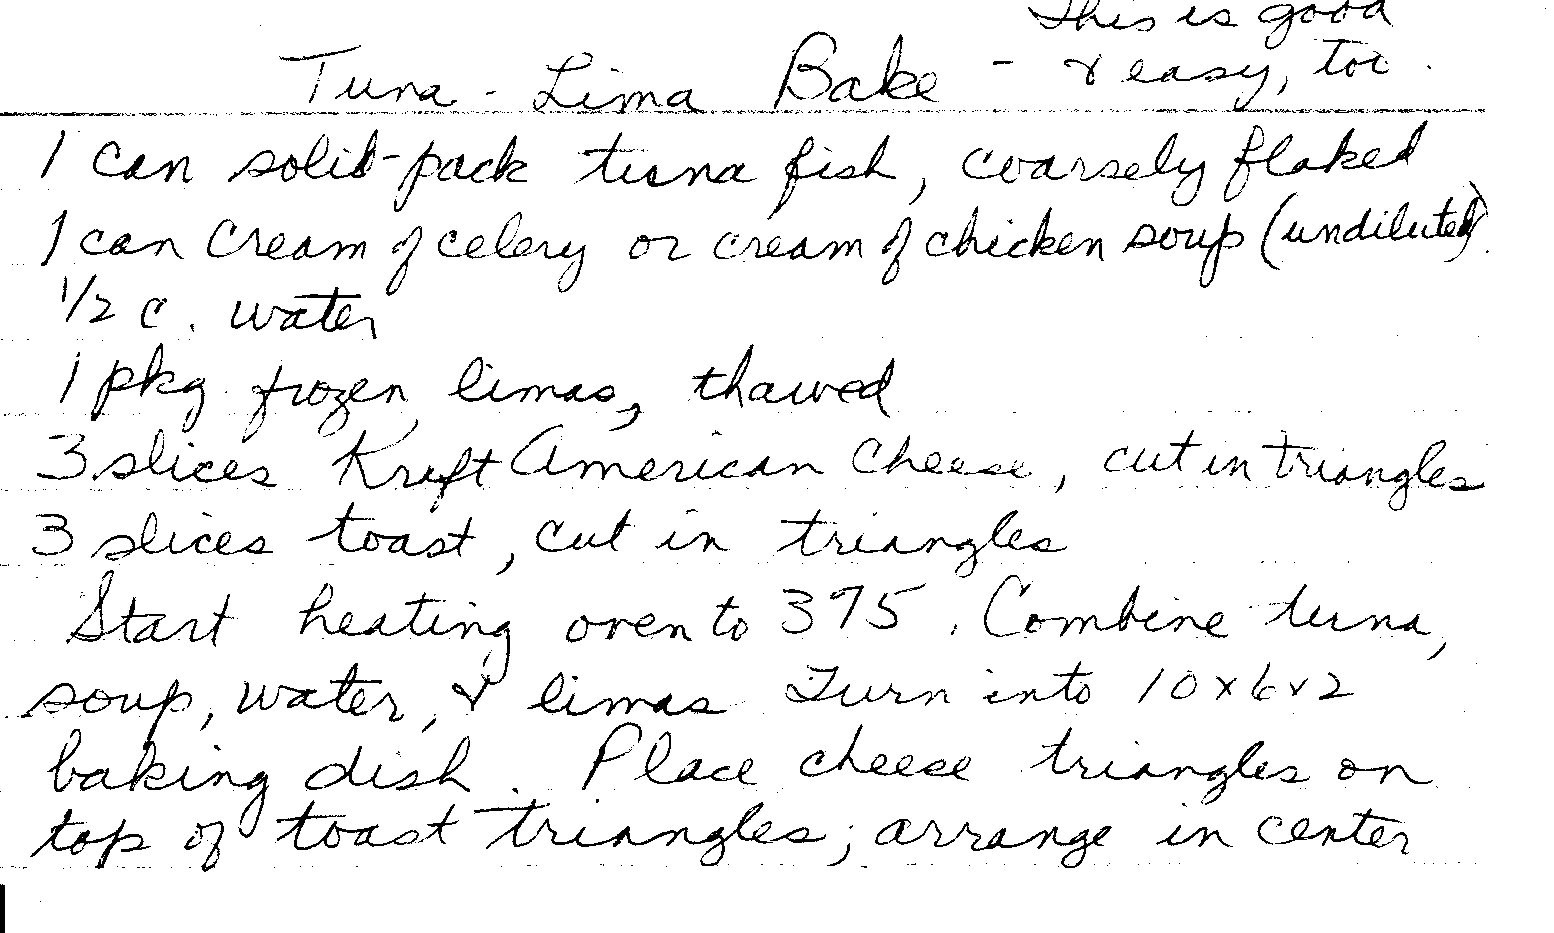 This is good
Tuna - Lima Bake - & easy, too.
1 can solid-pack tuna fish, coarsely flaked
1 can cream of celery or cream of chicken soup (undiluted).
1/2 c. water
1 pkg frozen limas, thawed
3 slices Kraft American cheese, cut in triangles
3 slices toast, cut in triangles
Start heating oven to 375. Combine tuna,
soup, water, & limas Turn into 10x6x2
baking dish. Place cheese triangles on
top of toast triangles; arrange in center